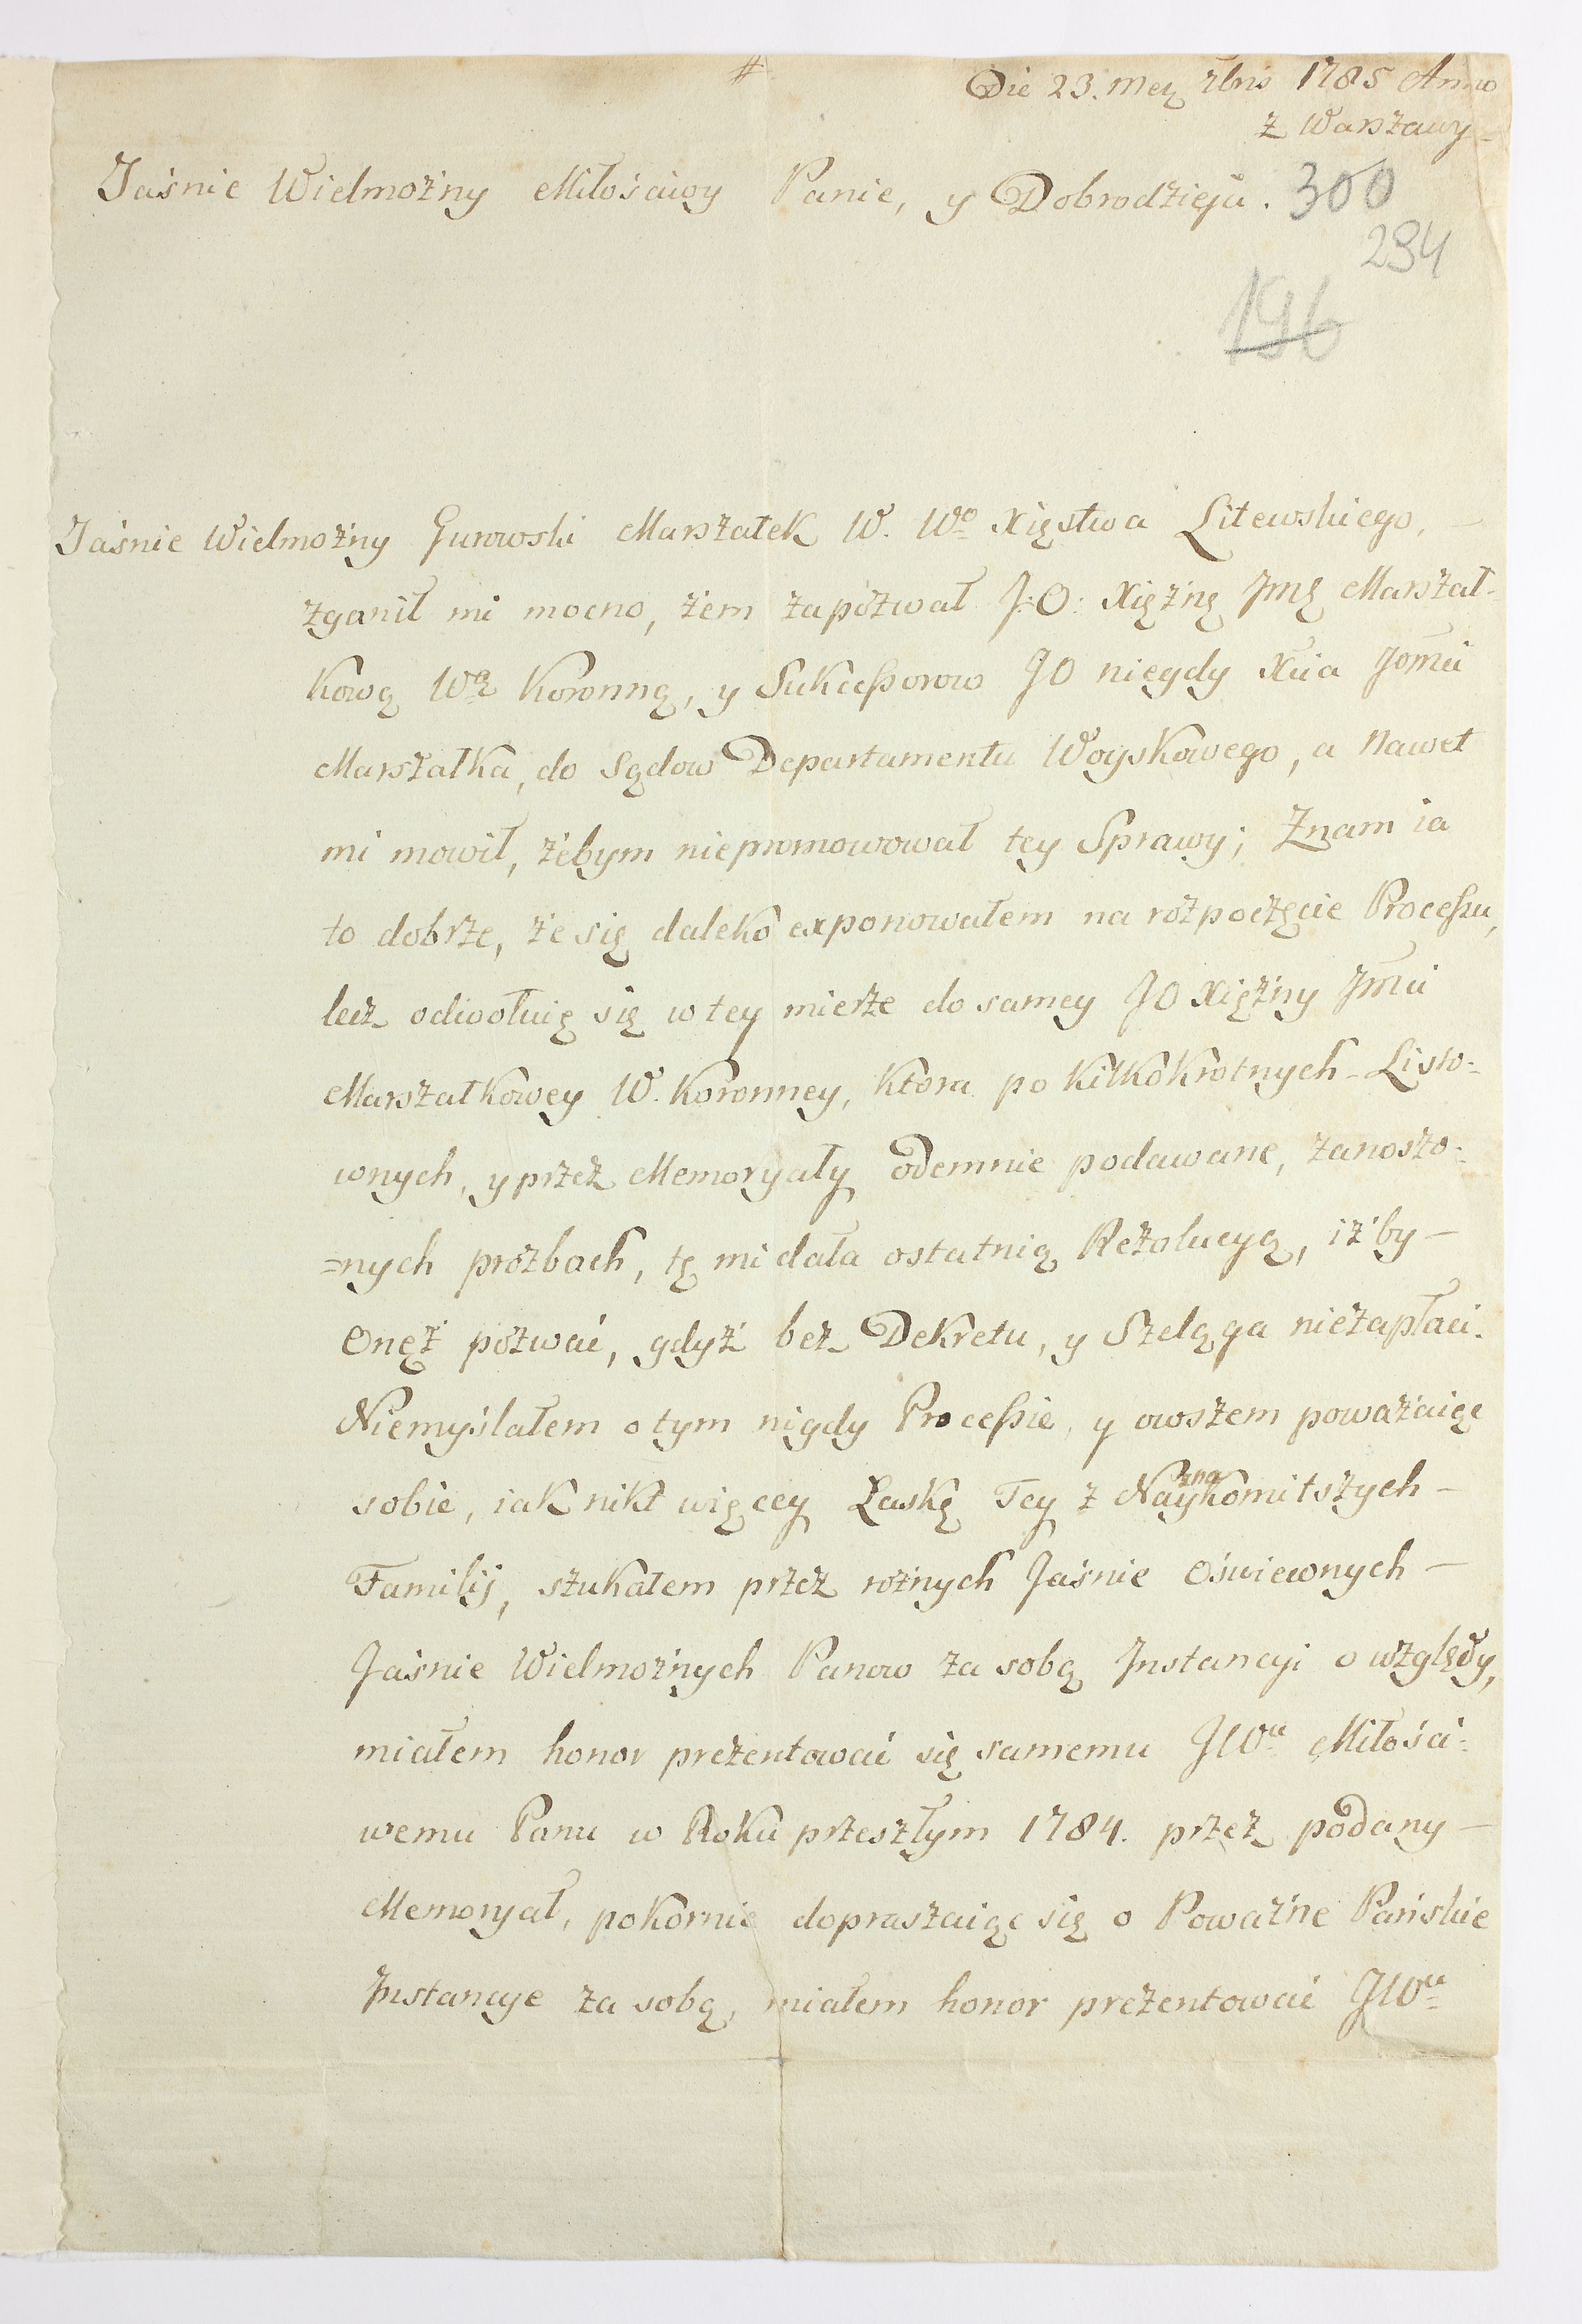 #
Die 23. Mez 7bris 1785 Anno
z Warszawy
Jaśnie Wielmożny Miłościwy Panie, y Dobrodzieju. 300
294
196
Jaśnie Wielmożny Gurowski Marszałek W. Wo Xięstwa Litewskiego,
zganił mi mocno, żem zapozwał J:O: Xiężnę Jmę Marszał-
kową Wą Koronną, y Sukcessorow JO niegdy Xcia Jomci
Marszałka, do Sądow Departamentu Woyskowego, a nawet
mi mowił, żebym niepromowował tey Sprawy; Znam ia
to dobrze, że się daleko exponowałem na rozpoczęcie Processu,
lecz odwołuię się w tey mierze do samey JO Xiężny Jmci
Marszałkowey W. Koronney, ktora po kilkokrotnych Listo-
wnych, y przez Memoryały odemnie podawane, zanoszo-
=nych prozbach, tę mi dała ostatnią Rezolucyą, iżby —
Onęż pozwać, gdyż bez Dekretu, y Szeląga niezapłaci.
Niemyślałem o tym nigdy Processie, y owszem poważaiąc
sobie, iak nikt więcey Łaskę Tey z Nayznakomitszych —
Familij, szukałem przez rożnych Jaśnie Oświeconych —
Jaśnie Wielmożnych Panow za sobą Instancyi o względy,
miałem honor prezentować się samemu JWu Miłości-
wemu Panu w Roku przeszłym 1784. przez podany —
Memoryał, pokornie dopraszaiąc się o Poważne Pańskie
Instancye za sobą, miałem honor prezentować JWu